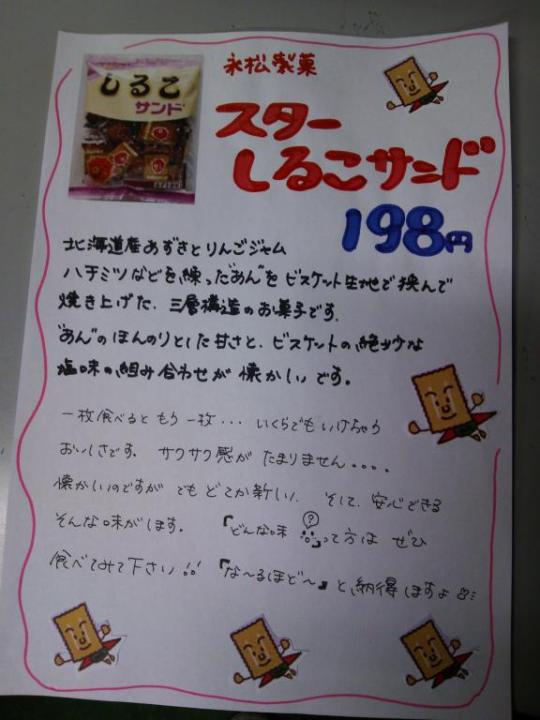 しるこ
サンド
永松製菓
スター
しるこサンド
198円
北海道産あずきとりんごジャム
ハチミツなどを練った"あん"を ビスケット生地で挟んで
焼き上げた、三層構造のお菓子です。
"あん"のほんのりとした甘さと、ビスケットの、絶妙な
塩味の、組み合わせが 懐かしいです。
一枚食べると もう一枚... いくらでもいけちゃう
おいしさです。 サクサク感が たまりません....
懐かしいのですが でも どこか新しい、 そして、安心できる
そんな味がします。 『どんな味?』って方は ぜひ
食べてみて下さい!! 『な〜るほど〜』と、納得しますよ